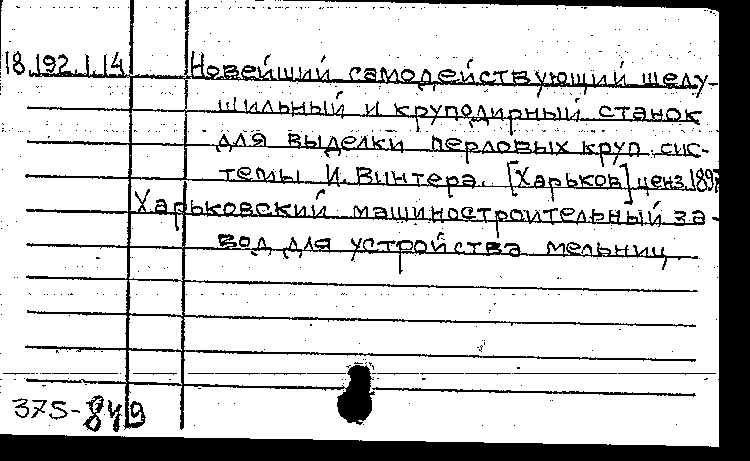 18.192.1.14 Новейший самодействующий шелу-
шильный и круподирный станок
для выделки перловых круп сис-
темы И. Винтера. [Харьков] ценз. 1897
Харьковский машиностроительный за-
вод для устройства мельниц.
375-849